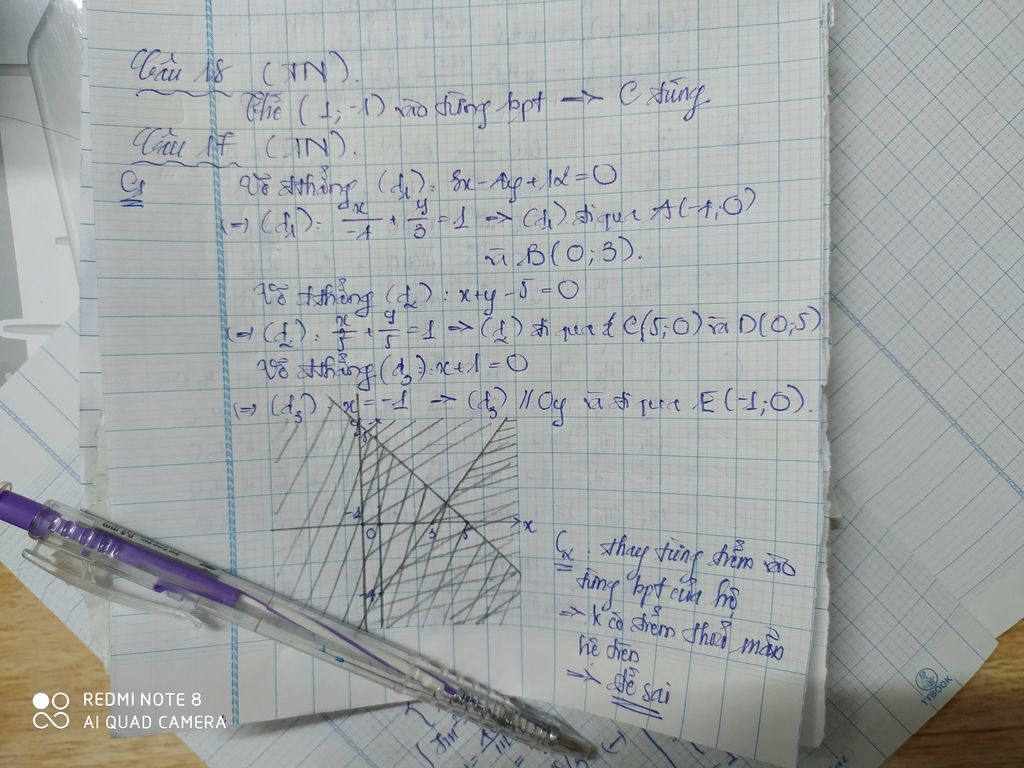 Câu 18 (TN).
Thế (1; -1) vào từng bpt → C đúng
Câu 17 (TN).
C1 Vẽ đthẳng (d1): 3x - 4y + 12 = 0
⇒ (d1): x/-4 + y/3 = 1 → (d1) đi qua A(-4; 0)
và B(0; 3).
Vẽ đthẳng (d2): x + y - 5 = 0
⇒ (d2): x/5 + y/5 = 1 → (d2) đi qua C(5; 0) và D(0; 5)
Vẽ đthẳng (d3): x + 1 = 0
⇒ (d3) x = -1 → (d3) // Oy và đi qua E(-1; 0).
5
-1
O
3
5
x
C2: thay từng điểm vào
từng bpt của hệ
→ K có điểm thoả mãn
hệ trên
→ Đề sai
TIBOOK
REDMI NOTE 8
AI QUAD CAMERA